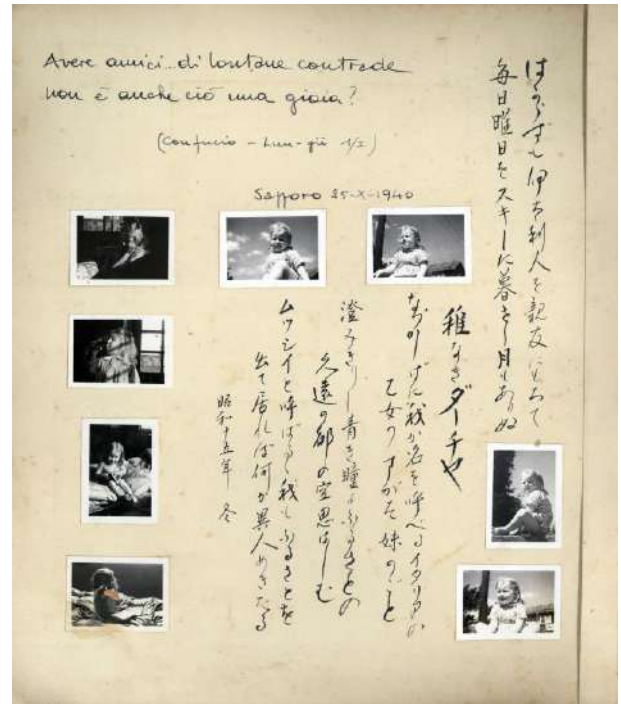 Avere amici.. di lontane contrade
non è anche ciò una gioia?
(Confucio - Lun-yü 1/I)
Sapporo 25-X-1940
はからずも伊太利人を親友にもちて
毎日曜日をスキーに暮せし月もありぬ
稚なきダーチャ
我が名を呼べるイタリアの
乙女のすがた妹のごと
澄みきりし青き瞳よふるさとの
久遠の都の空思はしむ
ムッシイと呼ばるる我もふるさとを
出て居れば何か異人めきたる
昭和十五年 冬